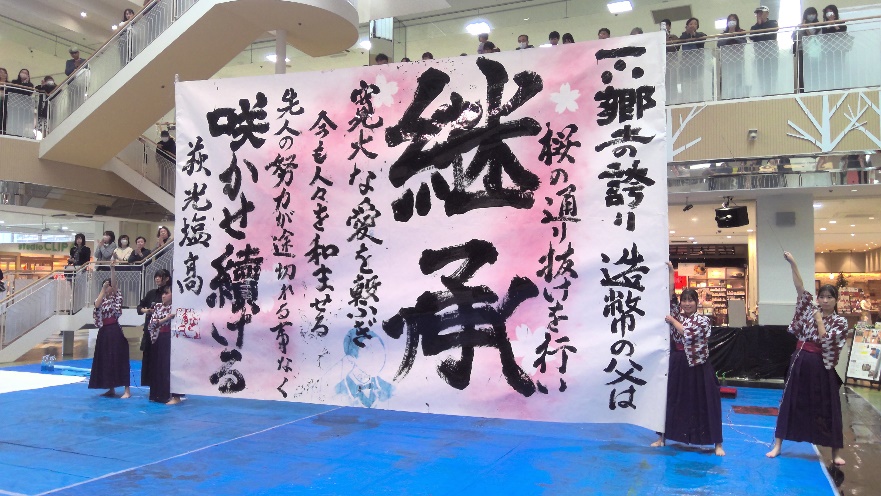 郷土の誇り 造幣の父は
桜の通り抜けを行い
継承
寛大な愛を敷ふぎ
今も人々を和ませる
先人の努力が途切れる事なく
咲かせ續ける
萩光塩高